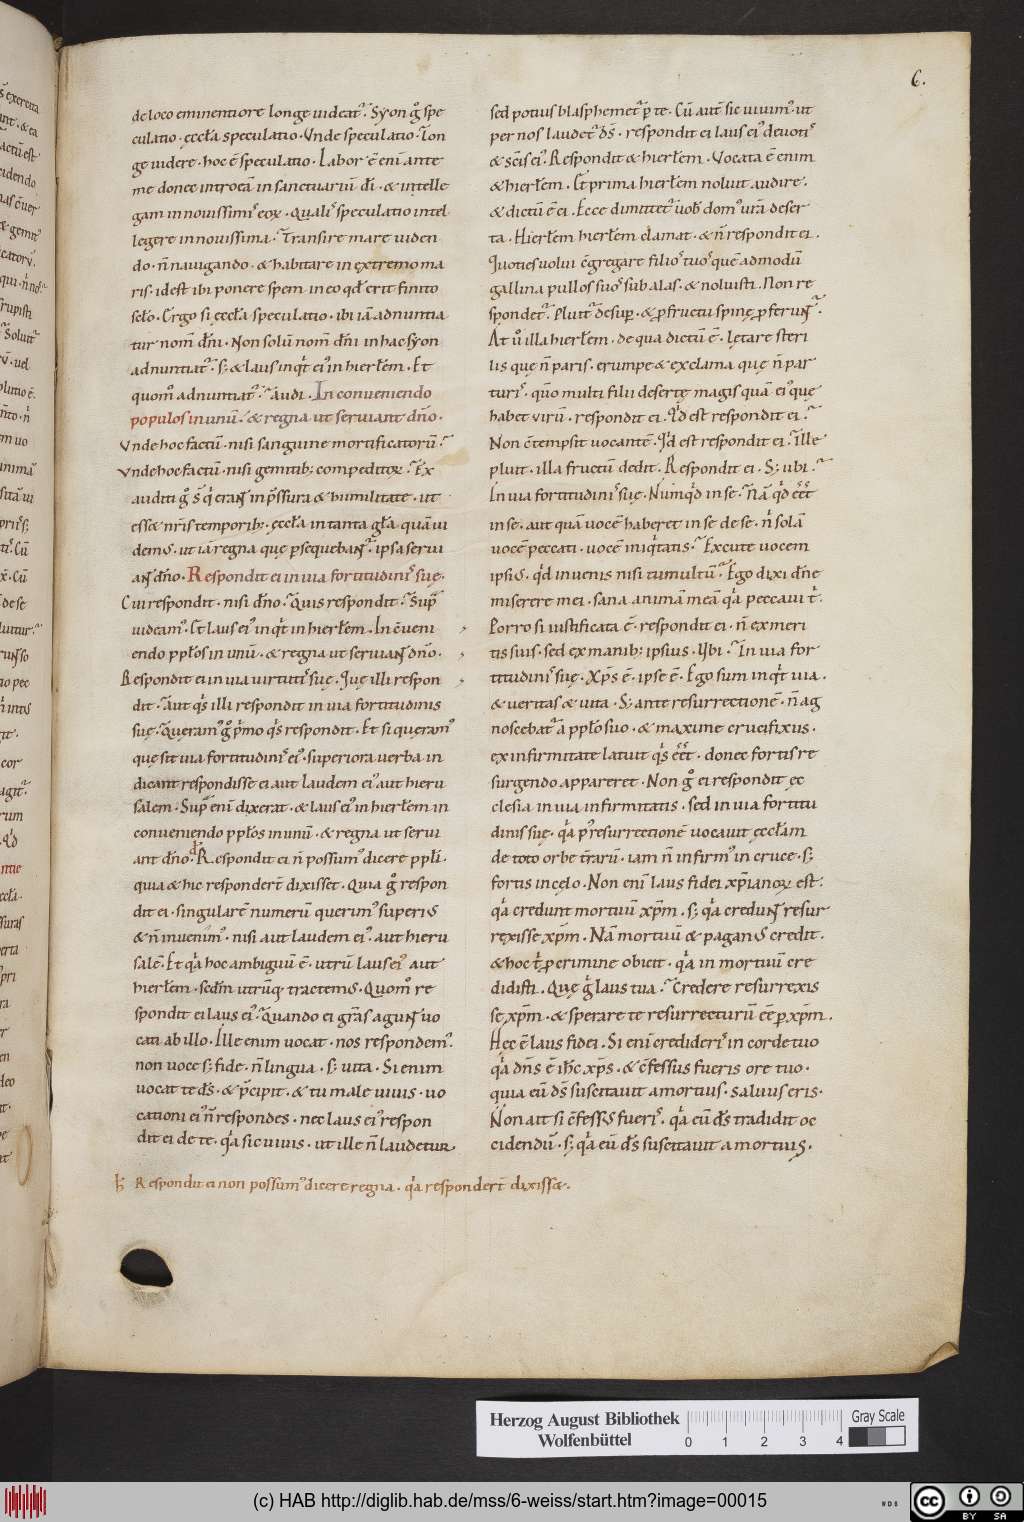 6.
de loco eminentiore longe uideat᷑. Syon g̊ spe
culatio. ęccła speculatio. Vnde speculatio. Lon
ge uidere. hoc ē speculatio. Labor ē enī ante
me donec introeā in sanctuariū dī. & intelle
gam in nouissimis eoꝝ. Qualis speculatio intel
legere in nouissima. Transire mare uiden
do. n̄ nauigando. & habitare in extremo ma
ris. id est ibi ponere spem in eo qđ erit finito
sclo. Ergo si ęccła speculatio. ibi iā adnuntia
tur nom̄ dn̄i. Non solū nom̄ dn̄i in hac syon
adnuntiat᷑. s; & laus inqt ei᷒ in hierlem. Et
quom̊ adnuntiat᷑. Audi. In conueniendo
populos in unū. & regna ut seruiant dn̄o.
Vnde hoc factū. nisi sanguine mortificatorū.
Vnde hoc factū. nisi gemitib; compeditoꝝ. Ex
auditi g̊ s̄ qi erant in p̄ssura & humilitate. ut
esset nr̄is temporib;. ęccła in tanta gła. quā ui
dem᷒. ut iā regna quę ꝑsequebant᷑. ipsa serui
ant dn̄o. Respondit ei in uia fortitudinis suę.
Cui respondit. nisi dn̄o. Quis respondit. Sup̄
uideam᷒. Et laus ei᷒ inqt in hierlem. In c̄ueni
endo pplos in unū. & regna ut seruiant dn̄o.
Respondit ei in uia uirtutis suę. Quę illi respon
dit. Aut qs illi respondit in uia fortitudinis
suę. Queram᷒ g̊ pimo qs respondit. Et si queram᷒
quę sit uia fortitudinis ei᷒. superiora uerba in
dicant respondisse ei aut laudem ei᷒ aut hieru
salem. Sup̄ enī dixerat. & laus ei᷒ in hierlem in
conueniendo pplos in unū. & regna ut serui
ant dn̄o. Respondit ei n̄ possum᷒ dicere ppli.
quia & hic responderēt dixisset. Quia g̊ respon
dit ei. singularē numerū querim᷒ superi᷒
& n̄ inuenim᷒. nisi aut laudem ei᷒. aut hieru
salē. Et qa hoc ambiguū ē. utrū laus ei᷒ aut
hierlem. secdm utrūq; tractem᷒. Quom̊ re
spondit ei laus ei᷒. Quando ei gr̄as agunt uo
cati ab illo. Ille enim uocat. nos respondem᷒.
non uoce s; fide. n̄ lingua. s; uita. Si enim
uocat te ds̄. & p̄cipit. & tu male uiuis. uo
cationi ei᷒ n̄ respondes. nec laus ei᷒ respon
dit ei de te. qa sic uiuis. ut ille n̄ laudetur.
sed potius blasphemet᷑ p̄ te. Cū autē sic uiuim᷒ ut
per nos laudet᷑ ds̄. respondit ei laus ei᷒ deuotis
& scis ei᷒. Respondit & hierlem. Vocata ē enim
& hierlem. Et prima hierlem noluit audire.
& dictū ē ei. Ecce dimittet᷑ uob̄ dom᷒ ur̄a deser
ta. Hierlem hierlem clamat. & n̄ respondit ei.
Quoties uolui c̄gregare filios tuos quē admodū
gallina pullos suos sub alas. & noluisti. Non re
spondet᷑. Pluit᷑ desup. & ꝓ fructu spinę ꝓferunt᷑.
At ů illa hierlem. de qua dictū ē. Lętare steri
lis quę n̄ paris. erumpe & exclama quę n̄ par
turis. qm̄ multi filii desertę magis quā ei᷒ quę
habet uirū. respondit ei. Qd est respondit ei.
Non c̄tempsit uocantē. Qd est respondit ei. Ille
pluit. illa fructū dedit. Respondit ei. S; ubi.
In uia fortitudinis suę. Numqd in se. Nā qd ēēt
in se. aut quā uocē haberet in se de se. n̄ solā
uocē peccati. uocē iniqtatis. Excute uocem
ipsi᷒. qd inuenis nisi tumultū. Ego dixi dn̄e
miserere mei. sana animā meā qa peccaui t̄.
Porro si iustificata ē. respondit ei. n̄ ex meri
tis suis. sed ex manib; ipsius. Ubi. In uia for
titudinis suę. Xp̄s ē. ipse ē. Ego sum inqt uia.
& ueritas & uita. S; ante resurrectionē. n̄ ag
noscebat᷑ a pplo suo. & maxime crucifixus.
ex infirmitate latuit qs ēēt. donec fortis re
surgendo appareret. Non g̊ ei respondit ęc
clesia in uia infirmitatis. sed in uia fortitu
dinis suę. qa p᷒ resurrectionē uocauit ęccłam
de toto orbe t̄rarū. iam n̄ infirm᷒ in cruce. s;
fortis in cęlo. Non enī laus fidei xp̄ianoꝝ est.
qa credunt mortuū xp̄m. s; qa credunt resur
rexisse xp̄m. Nā mortuū & pagan᷒ credit.
& hoc t̄ ꝑ crimine obicit. qa in mortuū cre
didisti. Quę g̊ laus tua. Credere resurrexis
se xp̄m. & sperare te resurrecturū ēē ꝑ xp̄m.
Hęc ē laus fidei. Si enī credideris in corde tuo
qa dn̄s ē ih̄c xp̄s. & c̄fessus fueris ore tuo.
quia eū ds̄ suscitauit a mortuis. saluus eris.
Non ait si c̄fess᷒ fueris. qa eū ds̄ tradidit oc
cidendū. s; qa eū ds̄ suscitauit a mortuis.
h̄ Respondit ei non possum᷒ dicere regna. qa responderēt dixisset.
Herzog August Bibliothek
Wolfenbüttel
0 1 2 3 4
Gray Scale
(c) HAB http://diglib.hab.de/mss/6-weiss/start.htm?image=00015
WDB
cc BY SA